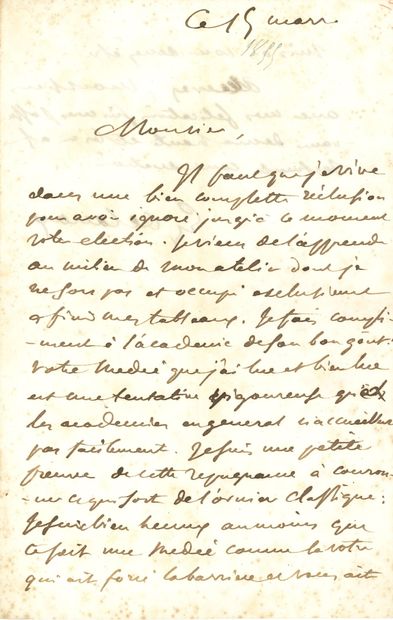 Ce 15 mars
1855
Monsieur,
Il faut que je vive
dans une bien complette réclusion
pour avoir ignoré jusqu'à ce moment
votre election. Je viens de l'apprendre
au milieu de mon atelier dont je
ne sors pas et occupé exclusivement
à finir mes tableaux. Je fais compli-
ment à l'academie de son bon gout.
Votre Medée que j'ai lue et bien lue
est une tentative vigoureuse que
les academies en general n'accueillent
pas facilement. Je suis une petite
preuve de cette repugnance à couron-
ner ce qui sort de l'ornier classique :
Je suis bien heureux au moins que
ce soit une Medée comme la votre
qui ait forcé la barriere et vous ait